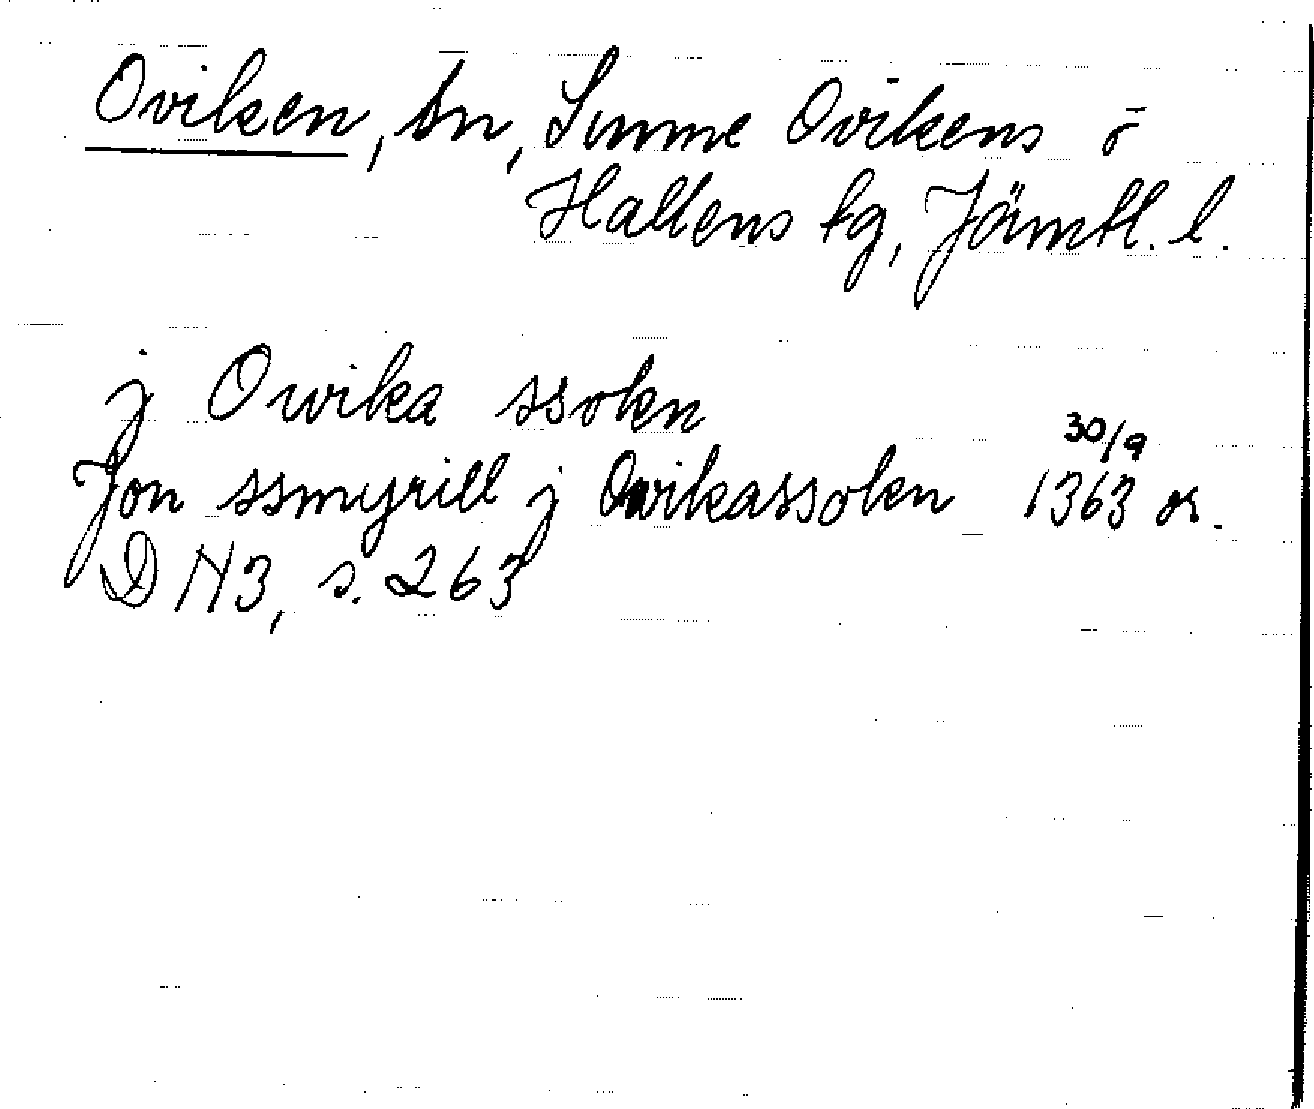 Oviken, sn, Sunne Ovikens o
Hallens tg, Jämtl. l.
j Owika ssokn
Jon ssmyrill j Owikassokn 30/9 1363 or.
DN3, s. 263